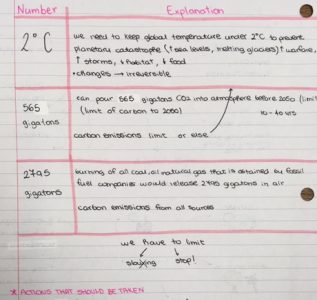 Number Explanation
2°C
we need to keep global temperature under 2°C to prevent
planetary catastrophe (↑sea levels, melting glaciers)↑ warfare,
↑ storms, ↓ habitat, ↓ food
•changes → irreversible
565
gigatons
can pour 565 gigatons CO2 into atmosphere before 2050 (limit)
(limit of carbon to 2050)
carbon emissions limit or else
2795
gigatons
burning of all coal, oil, natural gas that is obtained by fossil
fuel companies would release 2795 gigatons in air
carbon emissions from all sources
we have to limit
stop!
* ACTIONS THAT SHOULD BE TAKEN